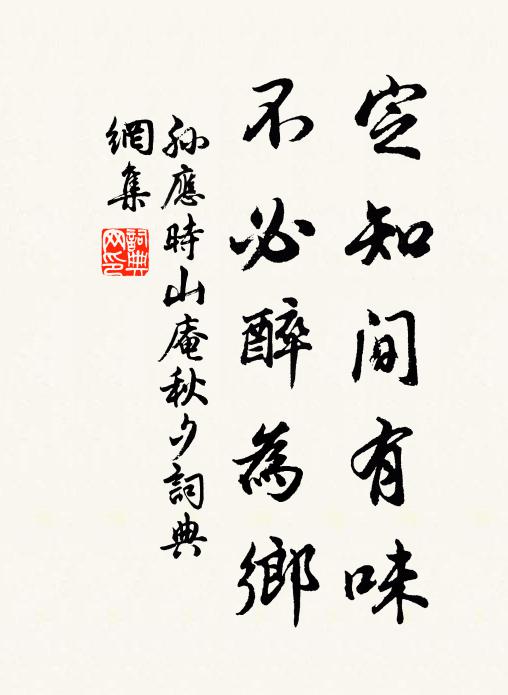 定知间有味
不必醉為鄉
孫應時山庵秋夕詞典
網集
詞典
网印